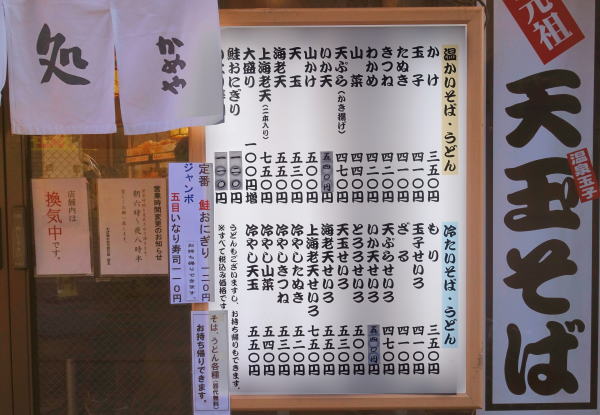 処
やぶか
元祖
天玉そば
温泉玉子
温かいそば・うどん
かけ 三五〇円
玉子 四一〇円
たぬき 四一〇円
きつね 四二〇円
わかめ 四二〇円
山菜 四二〇円
天ぷら(かき揚げ) 四七〇円
いか天 五四〇円
山かけ 五〇〇円
天玉 五三〇円
海老天 五五〇円
上海老天(二本入り) 七五〇円
大盛り 一〇〇円増
鮭おにぎり 一二〇円
冷たいそば・うどん
もり 三五〇円
玉子せいろ 四一〇円
ざる 四〇〇円
天ぷらせいろ 四七〇円
いか天せいろ 五四〇円
とろろせいろ 五〇〇円
天玉せいろ 五三〇円
海老天せいろ 五五〇円
上海老天せいろ 七五〇円
冷やしたぬき 五二〇円
冷やしきつね 五三〇円
冷やし山菜 五三〇円
冷やし天玉 五五〇円
うどんもございますし、お持ち帰りもできます。
※すべて税込み価格です
定番 鮭おにぎり 一二〇円
ジャンボ 五目いなり寿司 一一〇円
お持ち帰りできます。
そば、うどん各種(容器代無料)
お持ち帰りできます。
営業時間変更のお知らせ
朝六時〜夜八時半
店舗内は
換気中です。